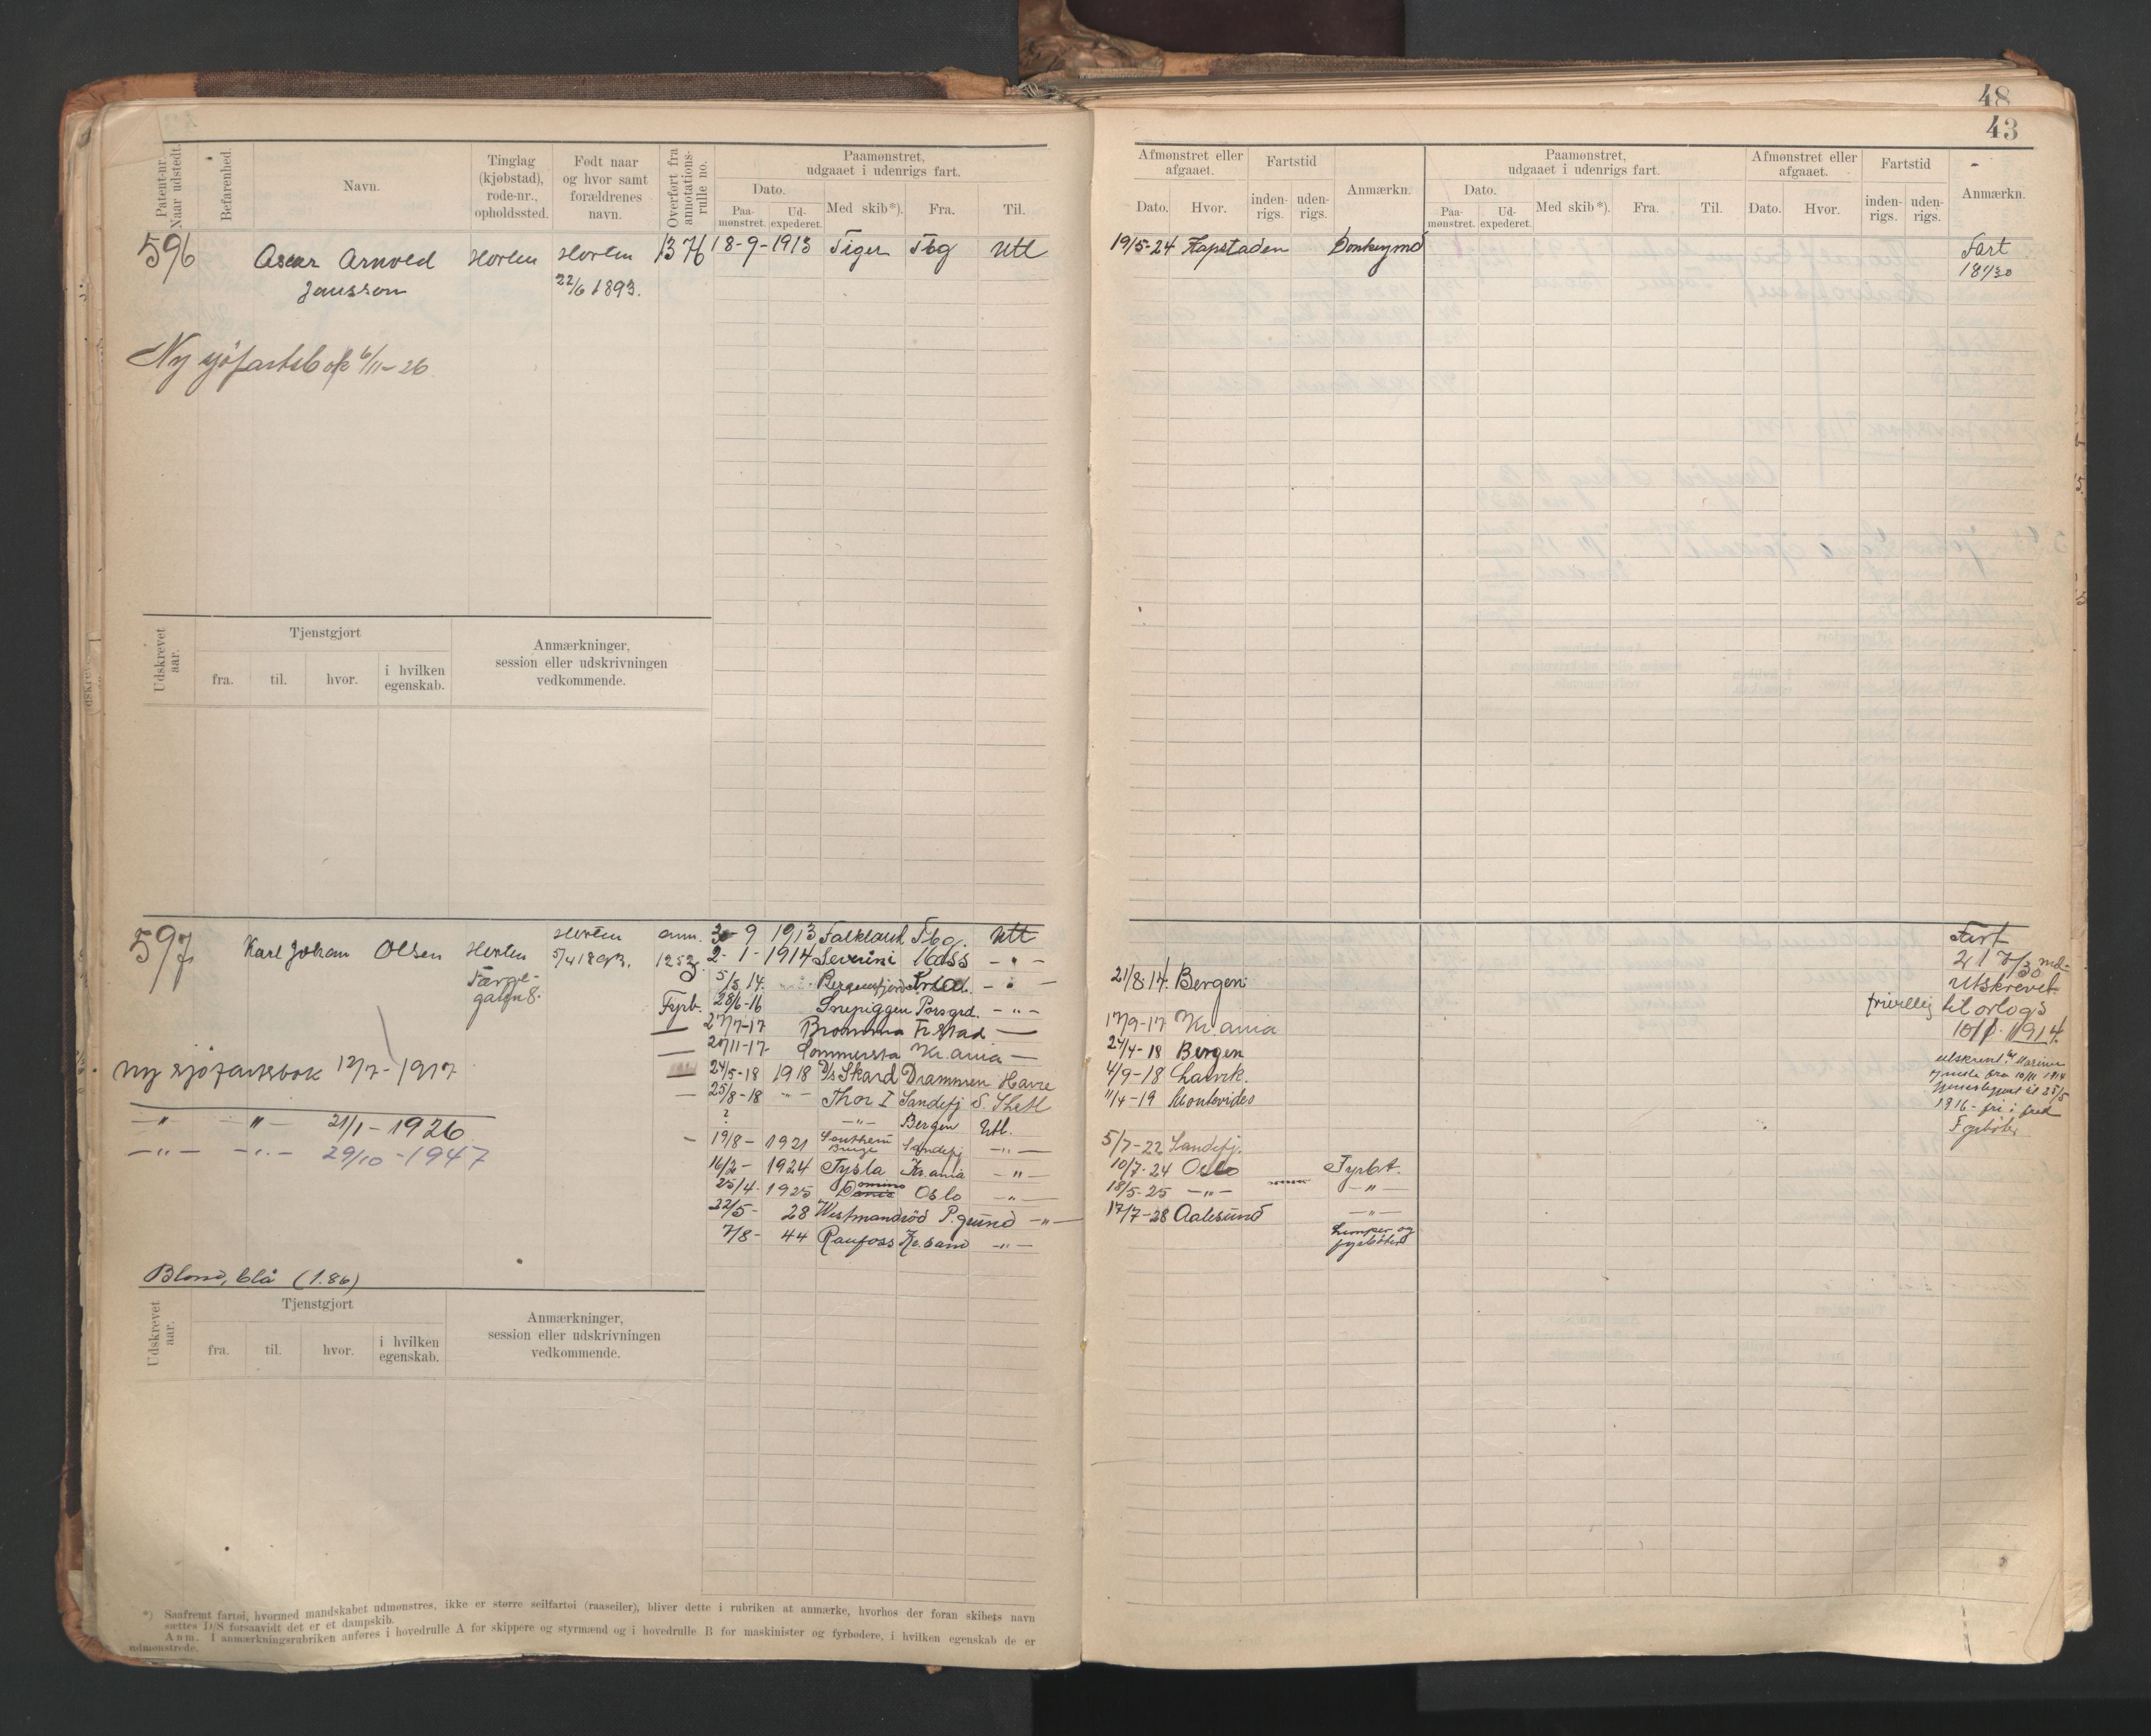 48
43
Patent-nr.
Naar udstedt.
Befarenhed.
Navn.
Tinglag
(kjøbstad),
rode-nr.,
opholdssted.
Født naar
og hvor samt
forældrenes
navn.
Overført fra
annotations-
rulle no.
Paamønstret,
udgaaet i udenrigs fart.
Dato.
Paa-
mønstret.
Ud-
expederet.
Med skib*).
Fra.
Til.
Afmønstret eller
afgaaet.
Dato.
Hvor.
Fartstid
inden-
rigs.
uden-
rigs.
Anmærkn.
Paamønstret,
udgaaet i udenrigs fart.
Dato.
Paa-
mønstret.
Ud-
expederet.
Med skib*).
Fra.
Til.
Afmønstret eller
afgaaet.
Dato.
Hvor.
Fartstid
inden-
rigs.
uden-
rigs.
Anmærkn.
596 Oscar Arnold Horten Horten 1376 18-9-1913 Tiger Tbg Utl 19/5-24 Kapstaden Donkeymd Fart
Jansson 22/6 1893. 18
Ny sjöfartsbok 6/11-26
Udskrevet
aar.
Tjenstgjort
fra.
til.
hvor.
i hvilken
egenskab.
Anmærkninger,
session eller udskrivningen
vedkommende.
597 Karl Johan Olsen Horten Horten ann. 9 1913 Falkland Tbg. Utl Fart
5/4 1893. 1253 2-1-1914 Severini Moss -"-
5/5 14. Bergensfjord -"- 21/8-14. Bergen Utskrevet
Fyrb. 28/6-16 Snepiggen Porsgrd. -"- frivillig til orlogs
27/7-17 Bromma Fr.stad — 17/9-17 Kr.ania 1914.
20/11-17 Sommersta Kr.ania — 24/4-18 Bergen
24/5-18 1918 D/s Skard Drammen Havre 4/9-18 Larvik.
25/8-18 -"- Thor I Sandefj S. Shetl 11/4-19 Montevideo 1916- fri i fred
? -"- Bergen Utl.
19/8- 1921 Southern Sandefj -"- 5/7-22 Sandefj.
16/2- 1924 Tysla Kr.ania -"- 10/7-24 Oslo Fyrbt.
25/4- 1925 Domino Oslo -"- 18/5-25 -"- -"-
22/5- 28 Westmanröd P.grund -"- 17/7-28 Aalesund -"-
7/8- 44 Raufoss Kr.sand -"- Lemper og
fyrböter
ny sjöfartsbok 12/7-1917
-"- -"- 21/1-1926
-"- -"- 29/10-1947
Blond, blå (1.86)
Udskrevet
aar.
Tjenstgjort
fra.
til.
hvor.
i hvilken
egenskab.
Anmærkninger,
session eller udskrivningen
vedkommende.
*) Saafremt fartøi, hvormed mandskabet udmønstres, ikke er større seilfartøi (raaseiler), bliver dette i rubriken at anmærke, hvorhos der foran skibets navn
sættes D/S forsaavidt det er et dampskib.
Anm. I anmærkningsrubriken anføres i hovedrulle A for skippere og styrmænd og i hovedrulle B for maskinister og fyrbødere, i hvilken egenskab de er
udmønstrede.